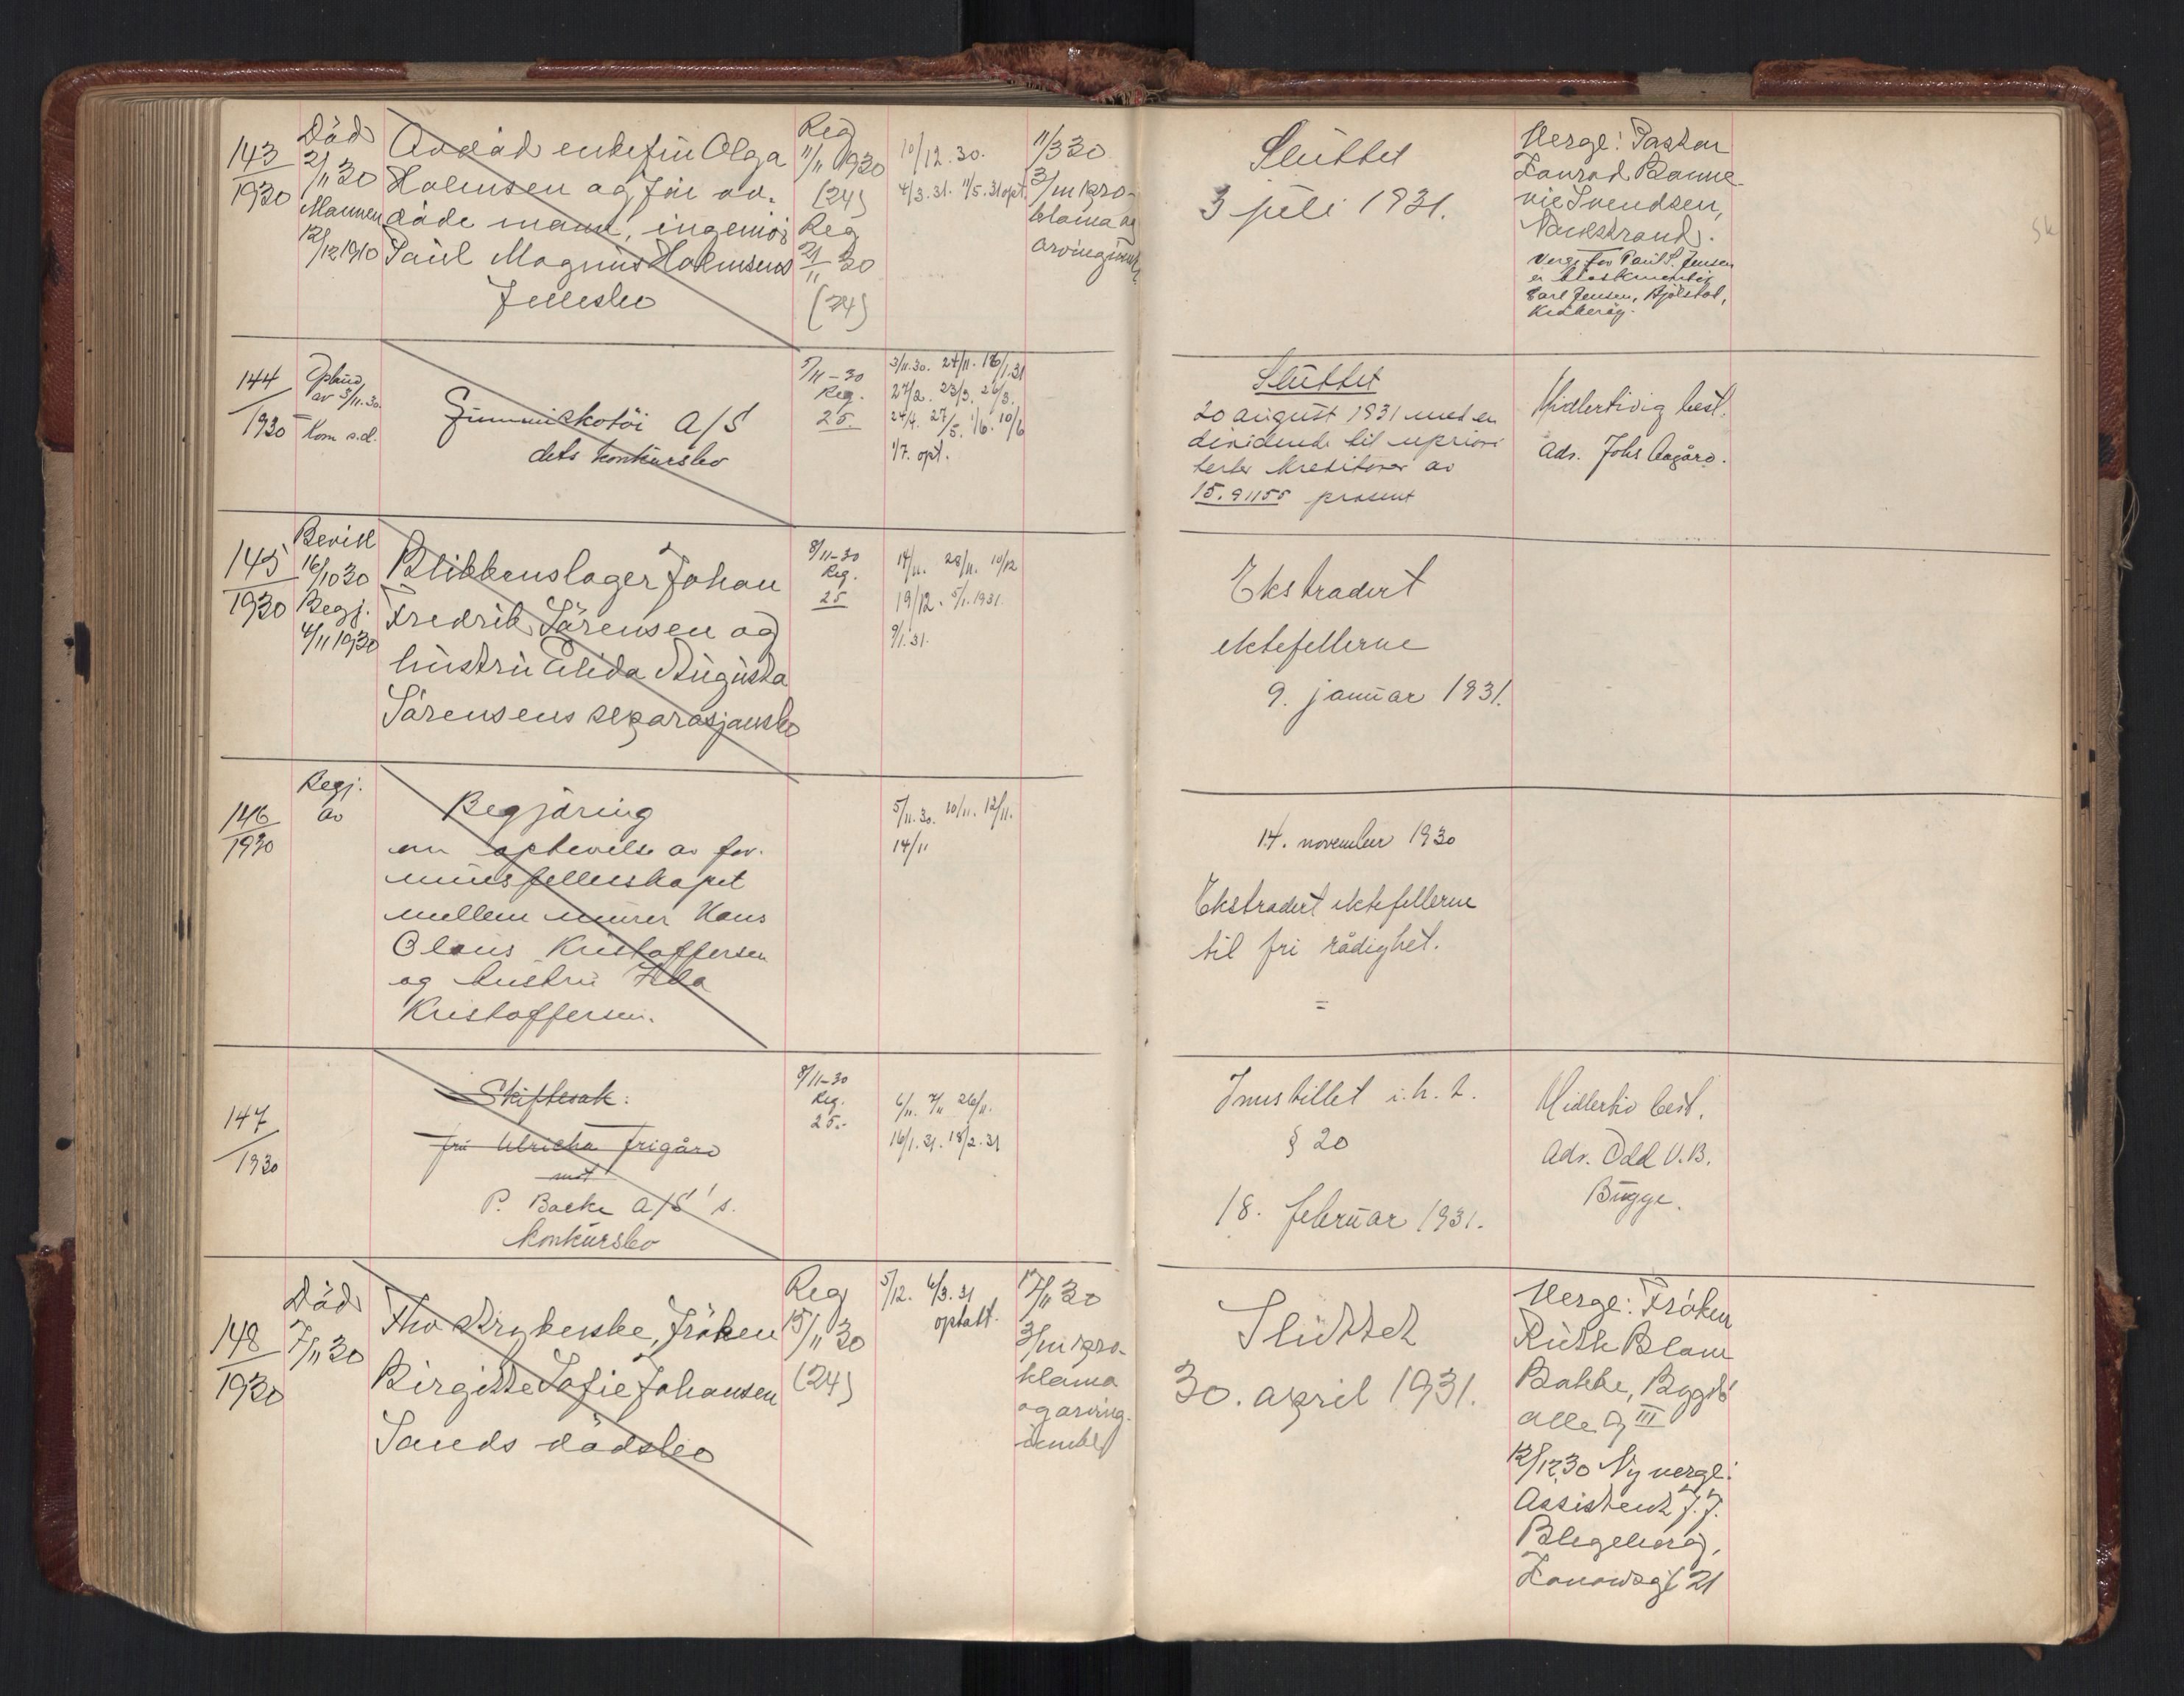 143
1930
Död
2/11 30
Mannen
12/12 1910
Avdöd enkefru Olga
Holmsen og før av-
døde mann, ingeniør
Paul Magnus Holmsens
fellesbo
Reg
11/11 1930
(24)
Reg
21/11 30
(24)
10/12.30.
4/3.31. 11/5.31 opt.
11/3 30
3/m pro-
klama og
Sluttet
3 juli 1931.
Verge: Pastor
Konrad Ranne-
vie Svendsen,
Verge for Paul S. Jensen
er
Carl Jensen,
144
1930
av 3/11.30.
Kom s.d.
Gummiskotöi A/S
dets konkursbo
5/11-30
Reg.
25.
3/11.30. 24/11. 16/1.31
27/2. 23/3. 26/3.
24/4. 27/5. 1/6. 10/6
1/7. opt.
Sluttet
20 august 1931 med en
dividende til upriori
terte kreditorer av
15.91155 prosent
Midlertidig best.
Adv. Johs Aagård.
145
1930
Bevill
16/10 30
Begj.
4/11 1930
Blikkenslager Johan
Fredrik Sörensen og
hustru Elida Augusta
Sörensens separasjonsbo
8/11-30
Reg.
25
14/11. 28/11. 10/12
19/12. 5/1.1931.
9/1.31.
Ekstradert
ektefellerne
9. januar 1931.
146
1930
Begj.
av
Begjäring
om ophevelse av for-
muesfellesskapet
mellem murer Hans
Olaus Kristoffersen
og hustru
Kristoffersen.
5/11.30. 10/11. 12/11.
14/11
14. november 1930
Ekstradert ektefellerne
til fri rådighet.
=
147
1930
Skiftesak:
fru Ulricha Frigård
mot
P. Backe A/S's.
konkursbo
8/11-30
Reg.
25.-
6/11. 7/11 26/11.
16/1.31. 18/2.31
Innstillet i.h.t.
§ 20
18. februar 1931.
Midlertid best.
Adv. Odd V.B.
Bugge.
148
1930
Död
7/11 30
Fhv strykerske, fröken
Birgitte Sofie Johansen
Sands dödsbo
Reg
15/11 30
(24)
5/12. 6/3.31
optatt.
17/11 30
3/m pro-
klama
og arving-
Sluttet
30. april 1931.
Verge: Fröken
Ruth Blom
Bakke, Bygdö
alle 9 III
12/12 30 Ny verge:
Assistent J. J.
21